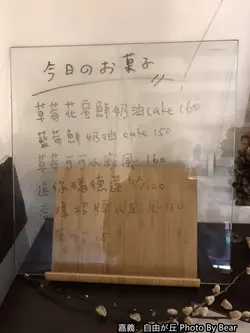 今日のお菓子
草莓花蜜鮮奶油cake 160
藍莓鮮奶油cake 150
草莓可可小戚風 160
迷你瑪德蓮 100
戚風 150
嘉義。自由が丘 Photo By Bear